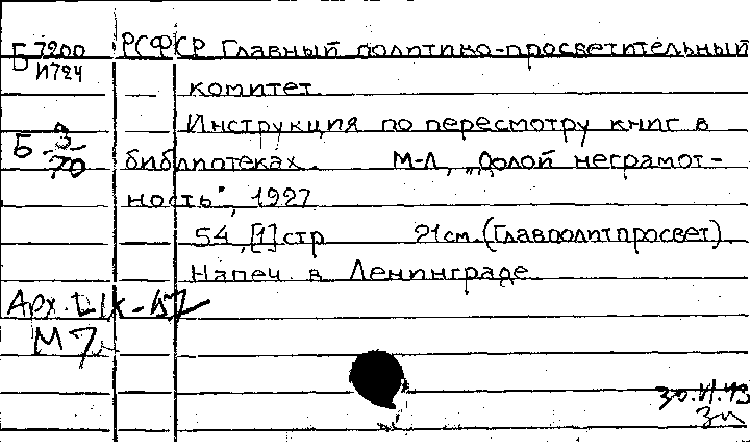 Б 7200
И724
РСФСР Главный политико-просветительный
комитет
Инструкция по пересмотру книг в
Б 3/70
библиотеках. М-Л, „Долой неграмот-
ность", 1927
54, [1] стр 21 см. (Главполитпросвет)
Напеч. в Ленинграде
Арх.
М7